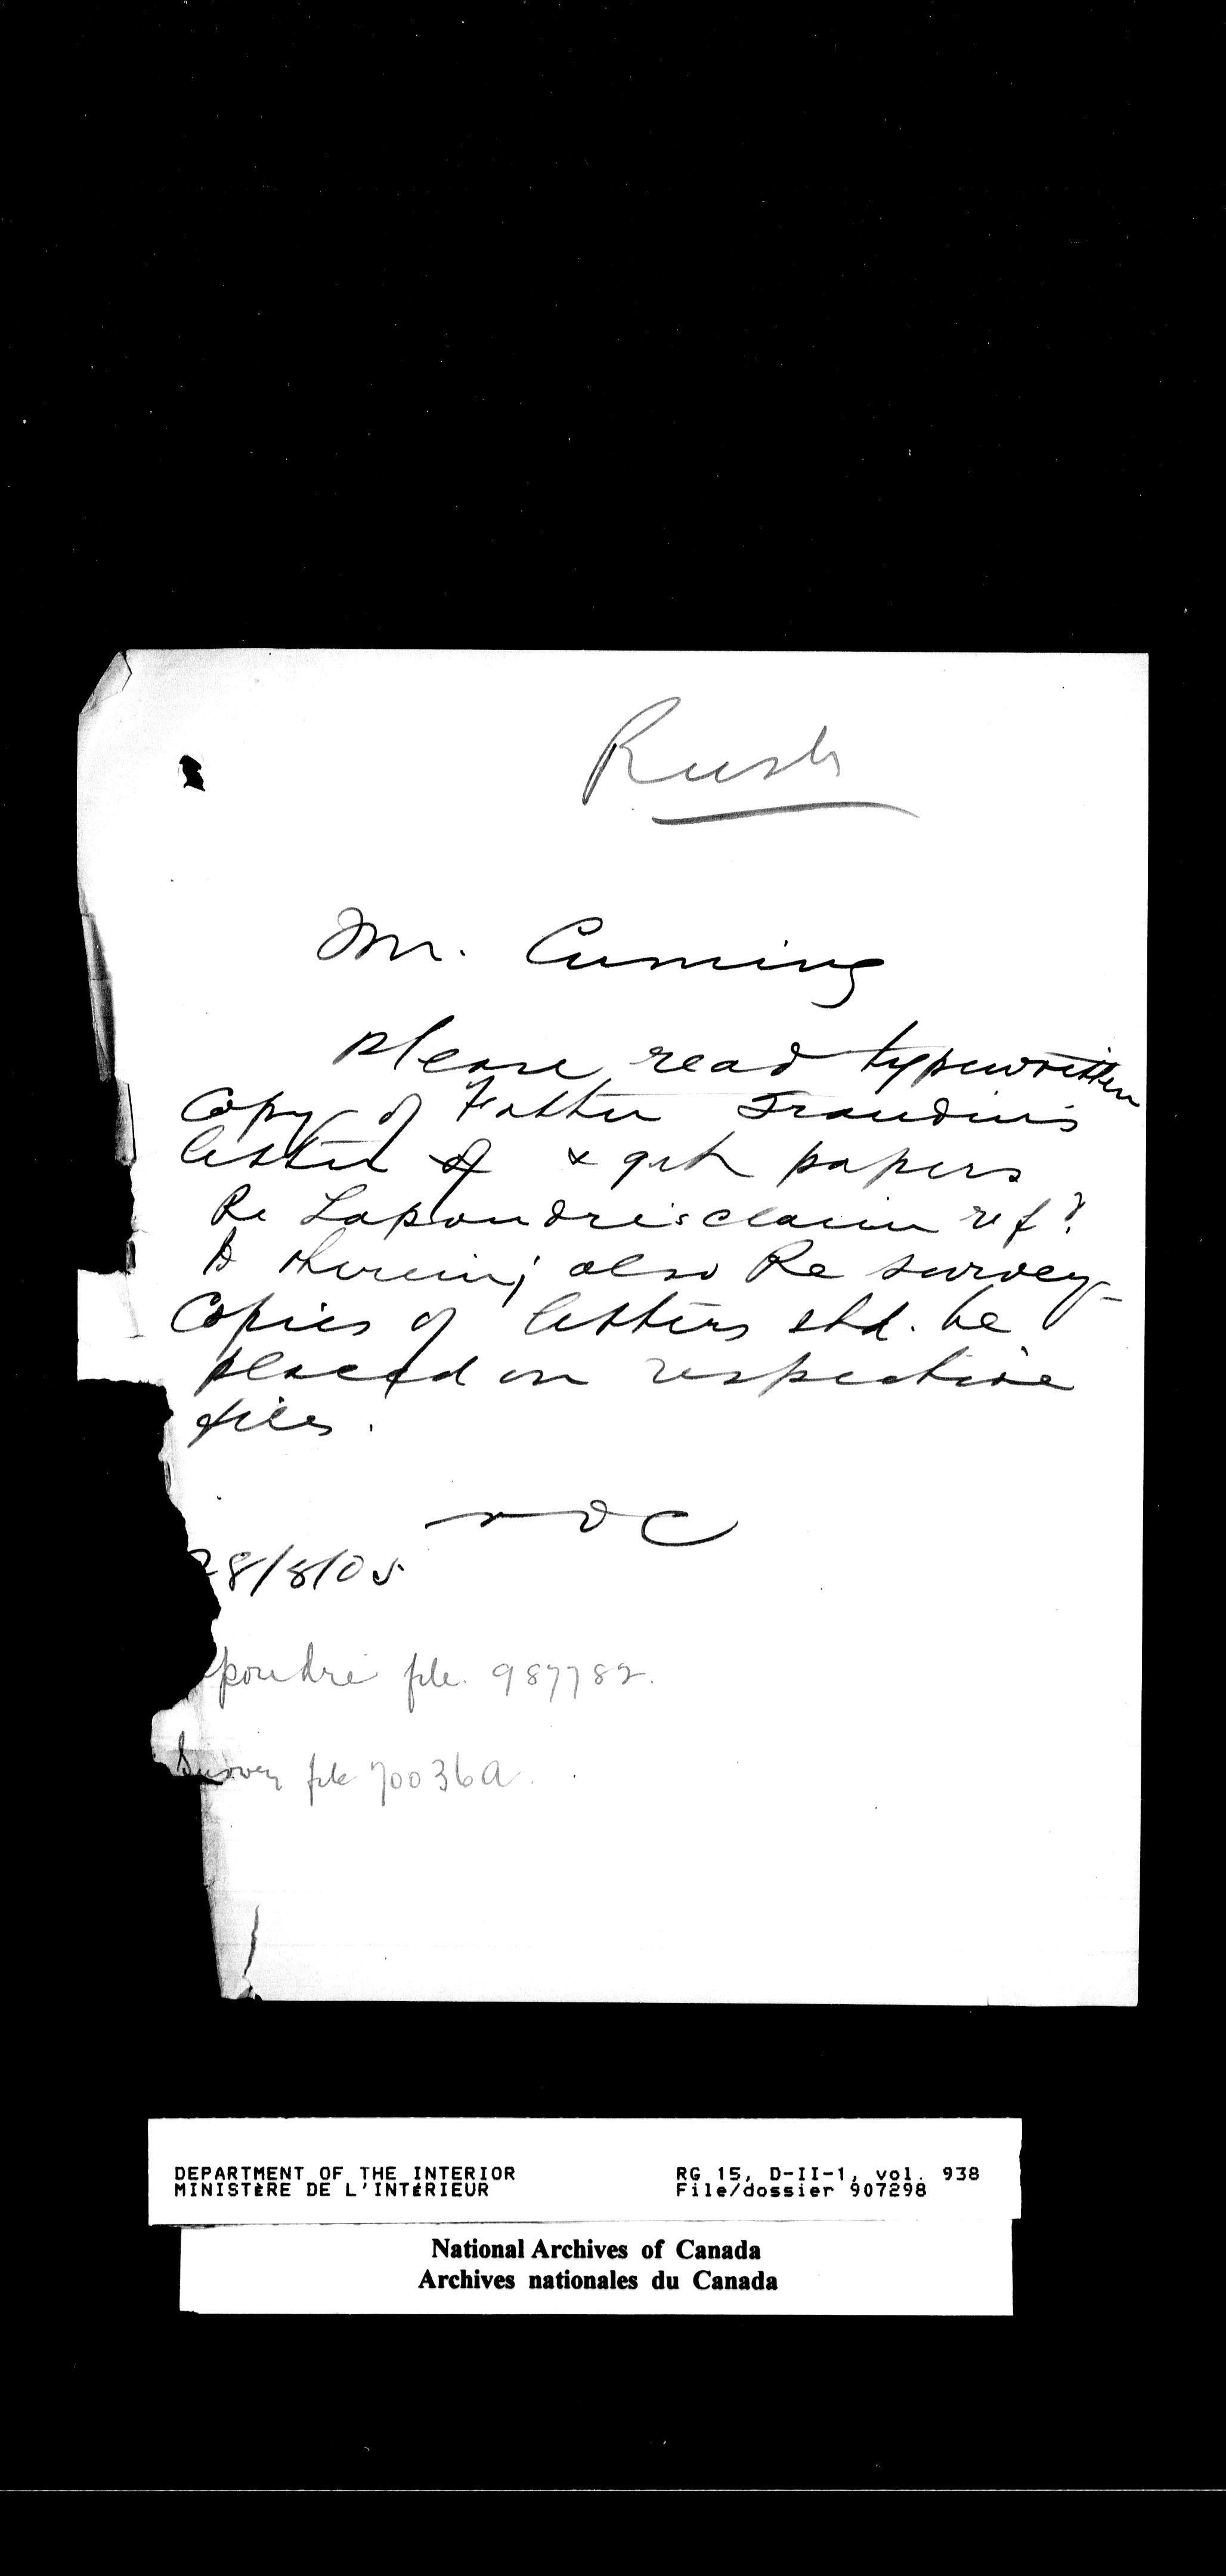 Rush
Mr. Cuming
please read typewritten
Copy of Father Grandin's
letter & get papers
Re Lapoudre's claim refd
to therein; also Re survey
Copies of letters shd. be
placed on respective
files.
NOC
28/8/05
poudre file. 987782.
Survey file 70036a.
DEPARTMENT OF THE INTERIOR
MINISTÈRE DE L'INTÉRIEUR
RG 15, D-II-1, vol. 938
File/dossier 907298
National Archives of Canada
Archives nationales du Canada